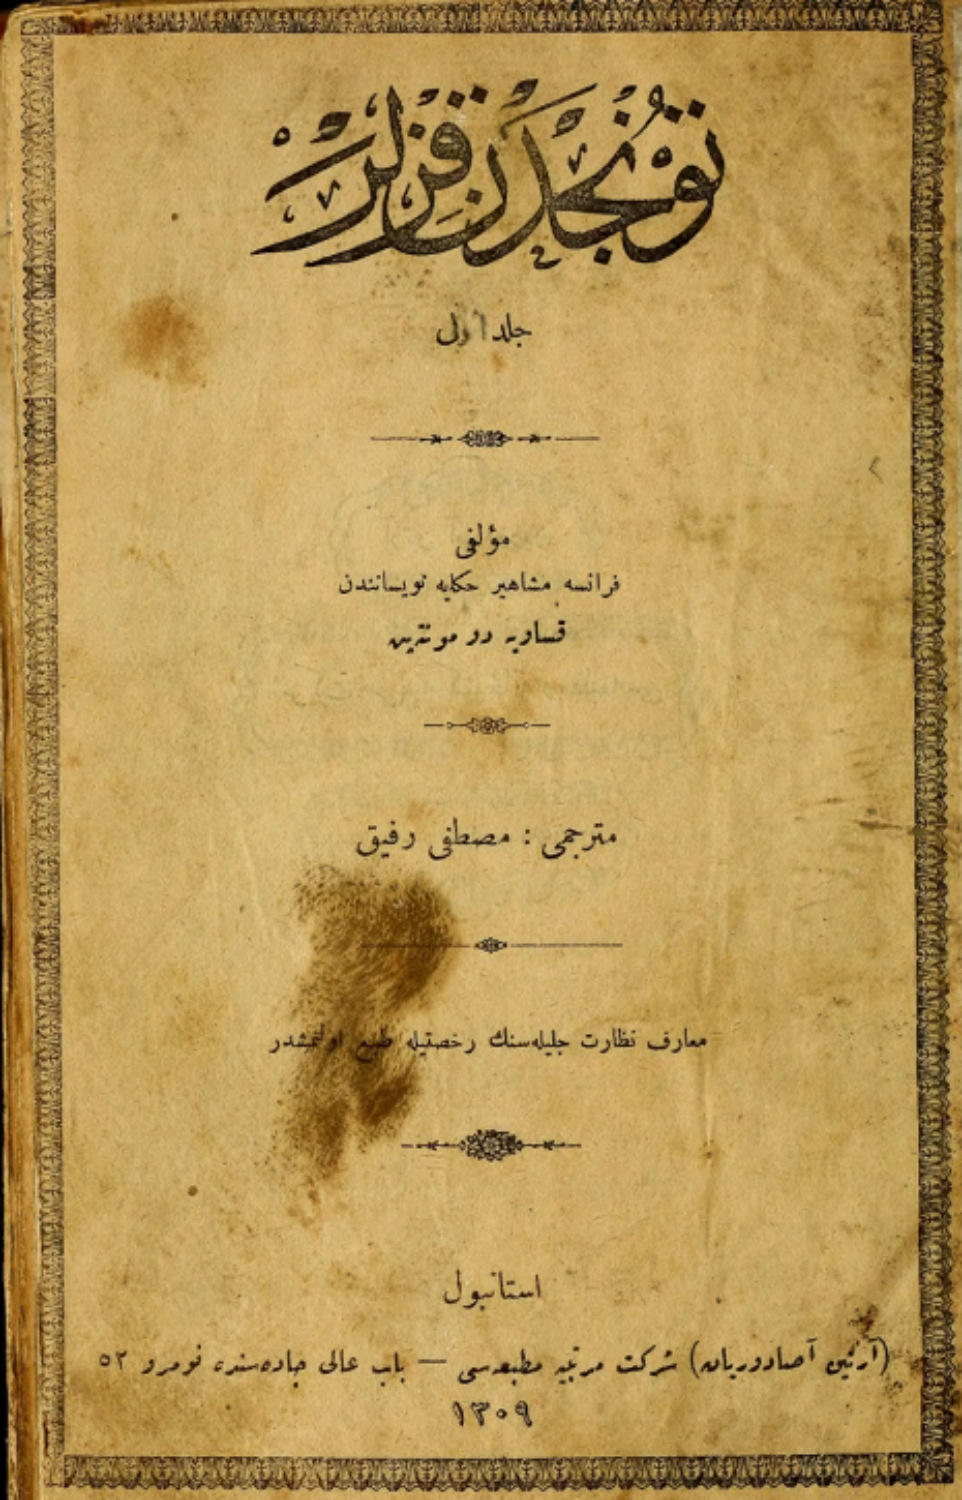 تونجدن قيزلر
جلد اول
مؤلفى
فرانسه مشاهير حكايه نويسانندن
قساويه دو مونتهپن
مترجمى : مصطفى رفيق
معارف نظارت جليله‌سنك رخصتيله طبع اولنمشدر
استانبول
(آرتين آصادوريان) شركت مرتبيه مطبعه‌سى — باب عالى جاده‌سنده نومرو ٥٢
١٣٠٩